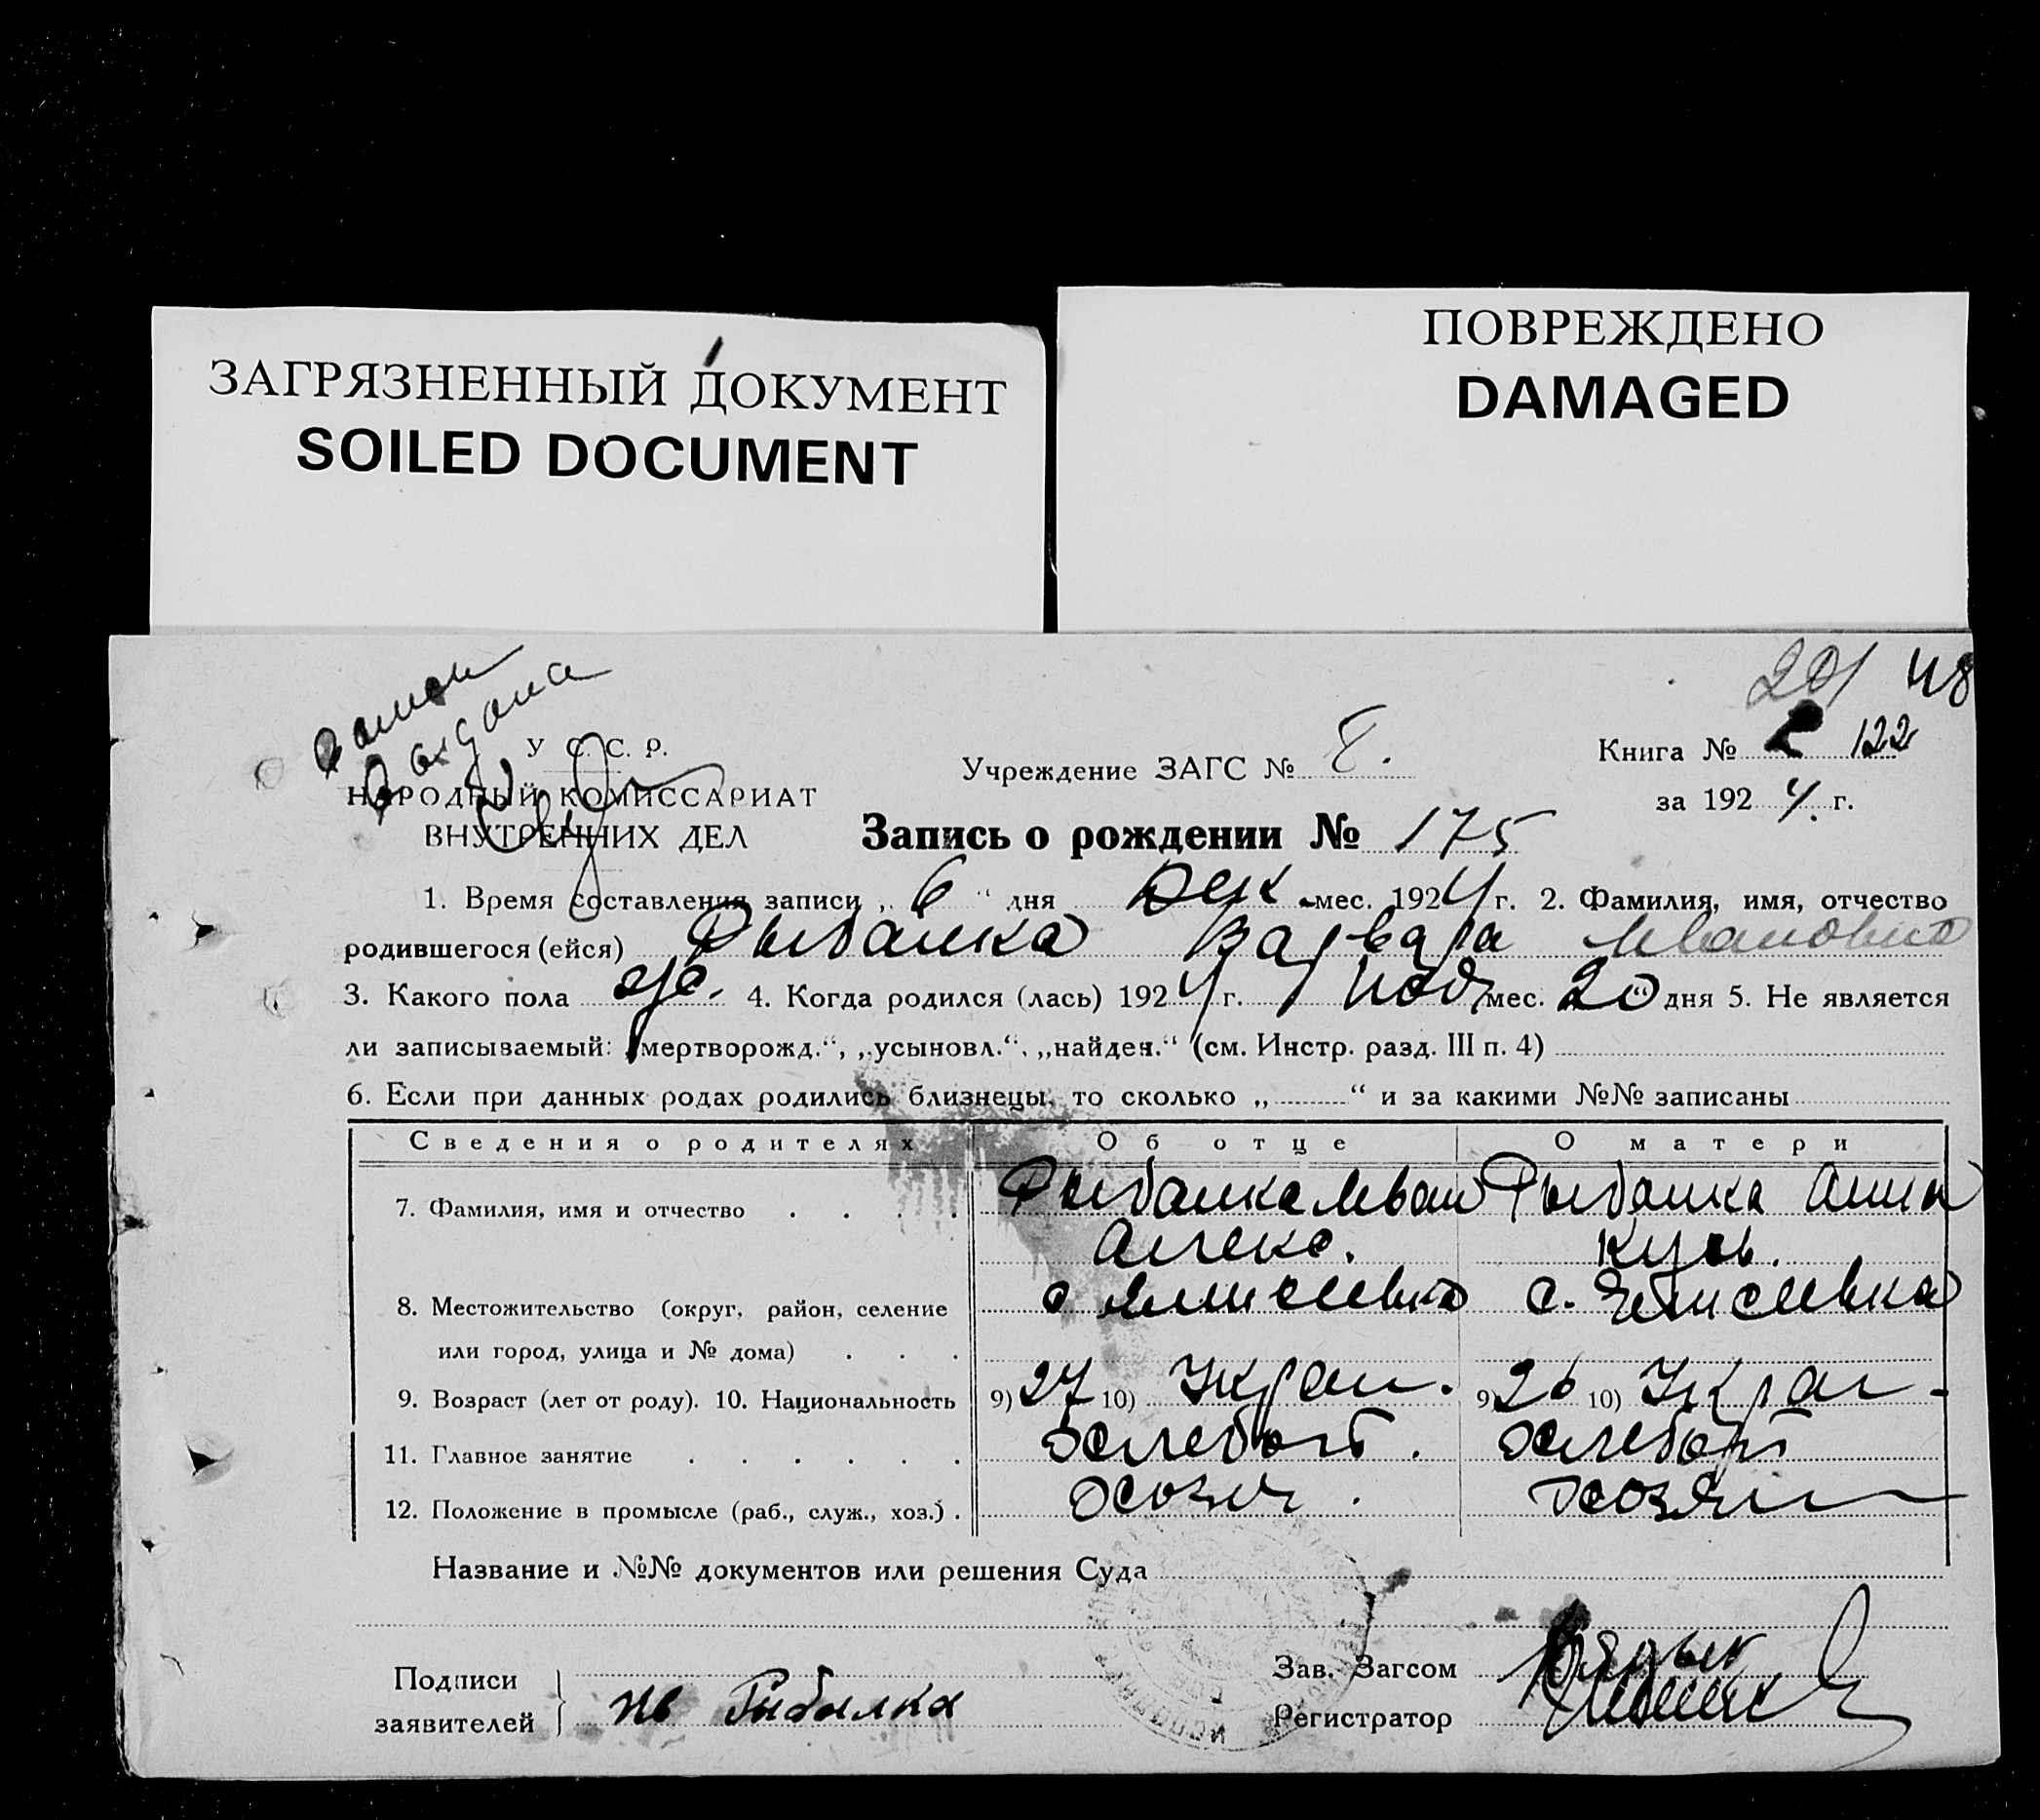 ЗАГРЯЗНЕННЫЙ ДОКУМЕНТ
SOILED DOCUMENT
ПОВРЕЖДЕНО
DAMAGED
201 48
У. С. С. Р.
НАРОДНЫЙ КОМИССАРИАТ
ВНУТРЕННИХ ДЕЛ
Учреждение ЗАГС № 8.
Книга № 122
за 1924 г.
Запись о рождении № 175
1. Время составления записи „ 6 “ дня Дек. мес. 1924 г. 2. Фамилия, имя, отчество
родившегося (ейся) Рыбалка Варвара Ивановна
3. Какого пола ж. 4. Когда родился (лась) 1924 г. Ноя мес. 20 “ дня 5. Не является
ли записываемый: „мертворожд.“, „усыновл.“, „найден.“ (см. Инстр. разд. III п. 4)
6. Если при данных родах родились близнецы, то сколько „ “ и за какими №№ записаны
Сведения о родителях Об отце О матери
7. Фамилия, имя и отчество . . . . Рыбалка Иван Рыбалка Анна
Алекс. Кузь.
8. Местожительство (округ, район, селение с. Елисеевка
или город, улица и № дома) . . .
9. Возраст (лет от роду). 10. Национальность 9) 27 10) Украин. 9) 26 10) Украин
11. Главное занятие . . . . . . Хлебороб. Хлебороб
12. Положение в промысле (раб., служ., хоз.) . Хозяин. Хозяин
Название и №№ документов или решения Суда
Подписи
заявителей
Ив Рибалка
Зав. Загсом
Регистратор